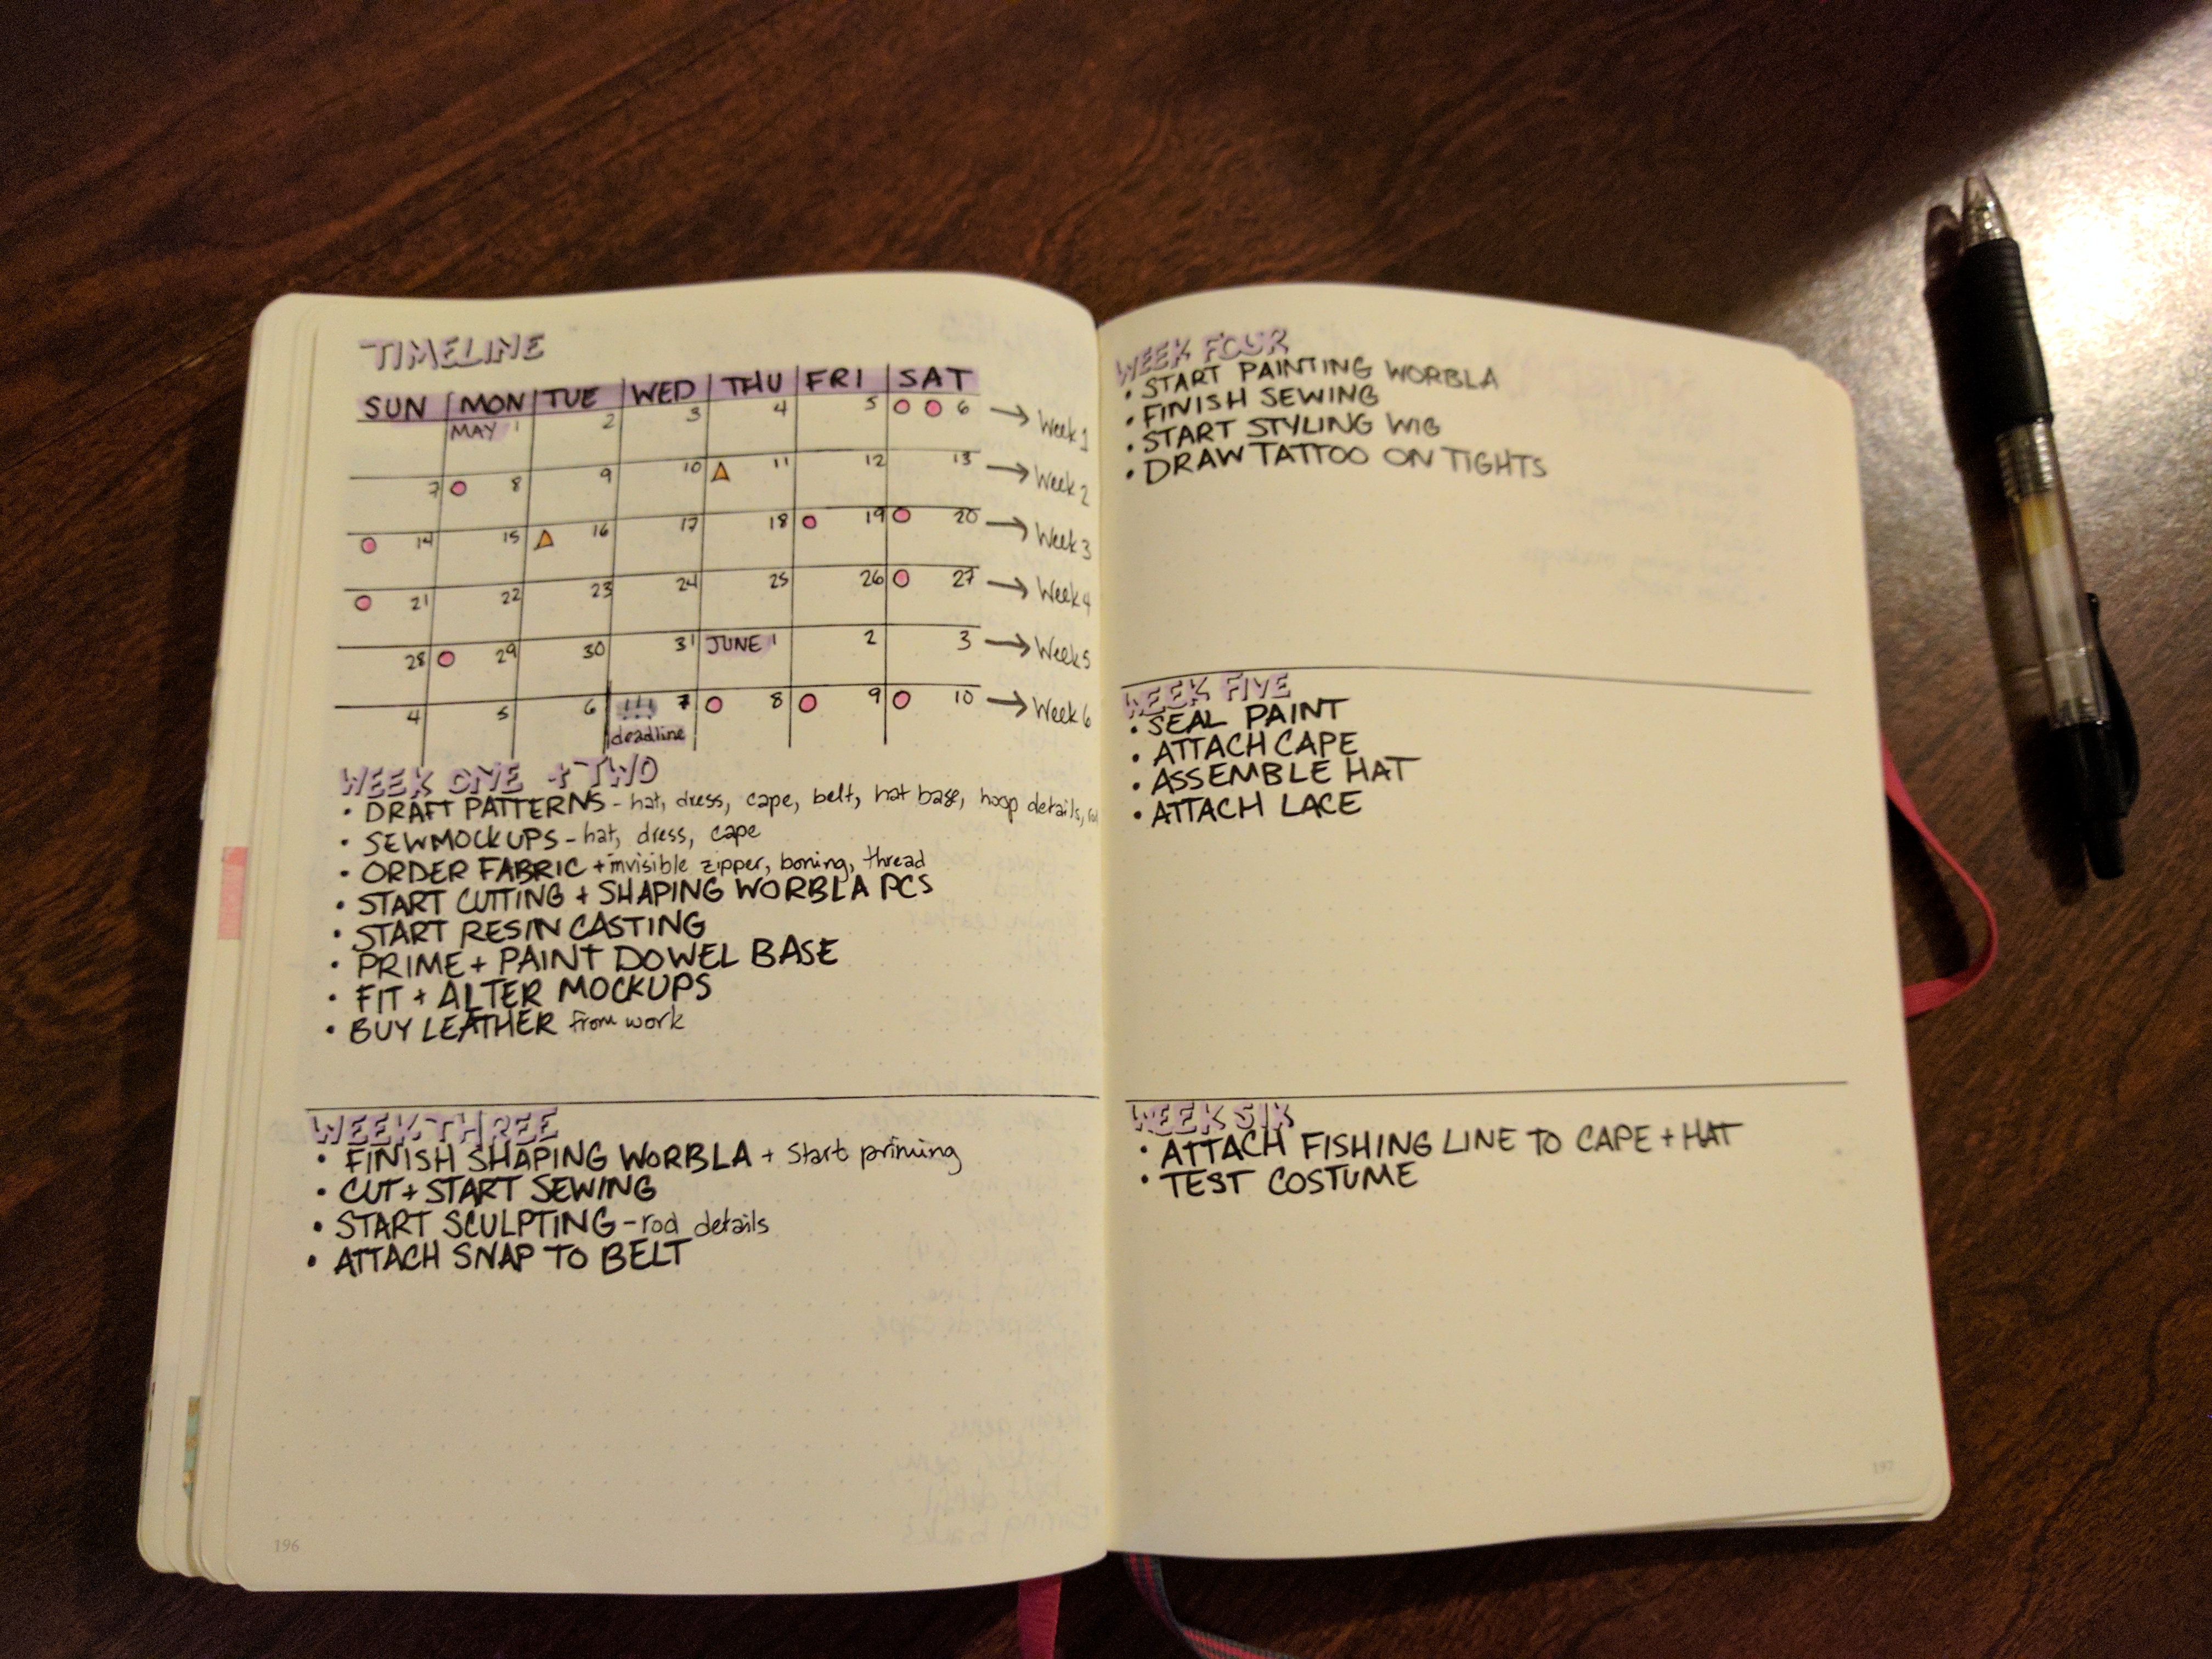 TIMELINE
SUN MON TUE WED THU FRI SAT
MAY 1 2 3 4 5 6 → Week 1
7 8 9 10 11 12 13 → Week 2
14 15 16 17 18 19 20 → Week 3
21 22 23 24 25 26 27 → Week 4
28 29 30 31 JUNE 1 2 3 → Week 5
4 5 6 !!! 7 8 9 10 → Week 6
deadline
WEEK ONE + TWO
• DRAFT PATTERNS - hat, dress, cape, belt, hat base, hoop details,
• SEW MOCKUPS - hat, dress, cape
• ORDER FABRIC + invisible zipper, boning, thread
• START CUTTING + SHAPING WORBLA PCS
• START RESIN CASTING
• PRIME + PAINT DOWEL BASE
• FIT + ALTER MOCKUPS
• BUY LEATHER from work
WEEK THREE
• FINISH SHAPING WORBLA + start priming
• CUT + START SEWING
• START SCULPTING - rod details
• ATTACH SNAP TO BELT
196
WEEK FOUR
• START PAINTING WORBLA
• FINISH SEWING
• START STYLING WIG
• DRAW TATTOO ON TIGHTS
WEEK FIVE
• SEAL PAINT
• ATTACH CAPE
• ASSEMBLE HAT
• ATTACH LACE
WEEK SIX
• ATTACH FISHING LINE TO CAPE + HAT
• TEST COSTUME
197